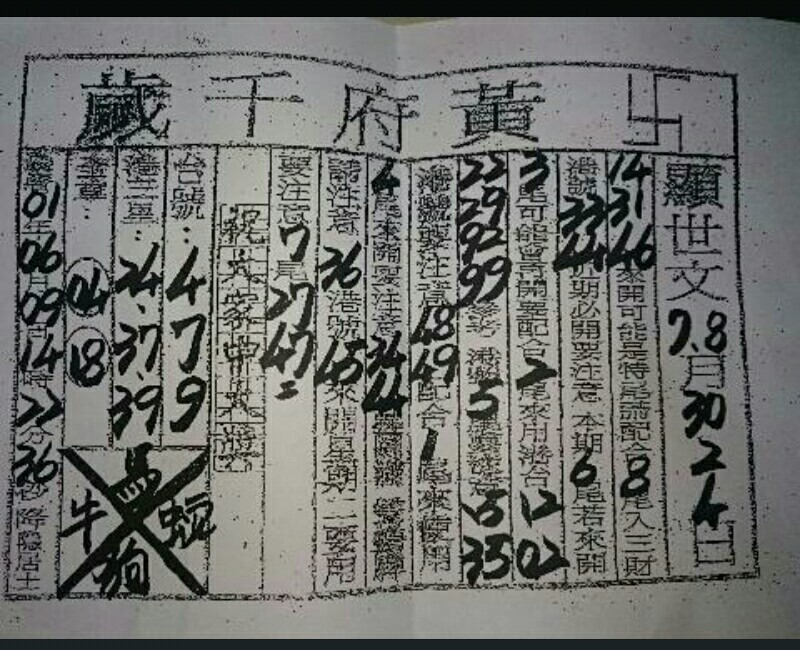 卐黃府千歲
顯世文 7.8月30 2 4日
14 31 46來開可能是特尾請配合8尾入三財
港號33 44此期必開要注意 本期6尾若來開
3尾可能會再開要配合2尾來用港台12 02
22 29 92 99參考 港號5尾要注意15 35
港號要注意48 49配合1尾來使用
4尾來開要注意34 44
請注意 36港號45來開星期六二要用
要注意7尾27 47=
祝大家中大獎
台號：4 7 9
港三星：24、37、39
04 18
馬 牛 蛇 狗
01年06月09日14時22分36秒降